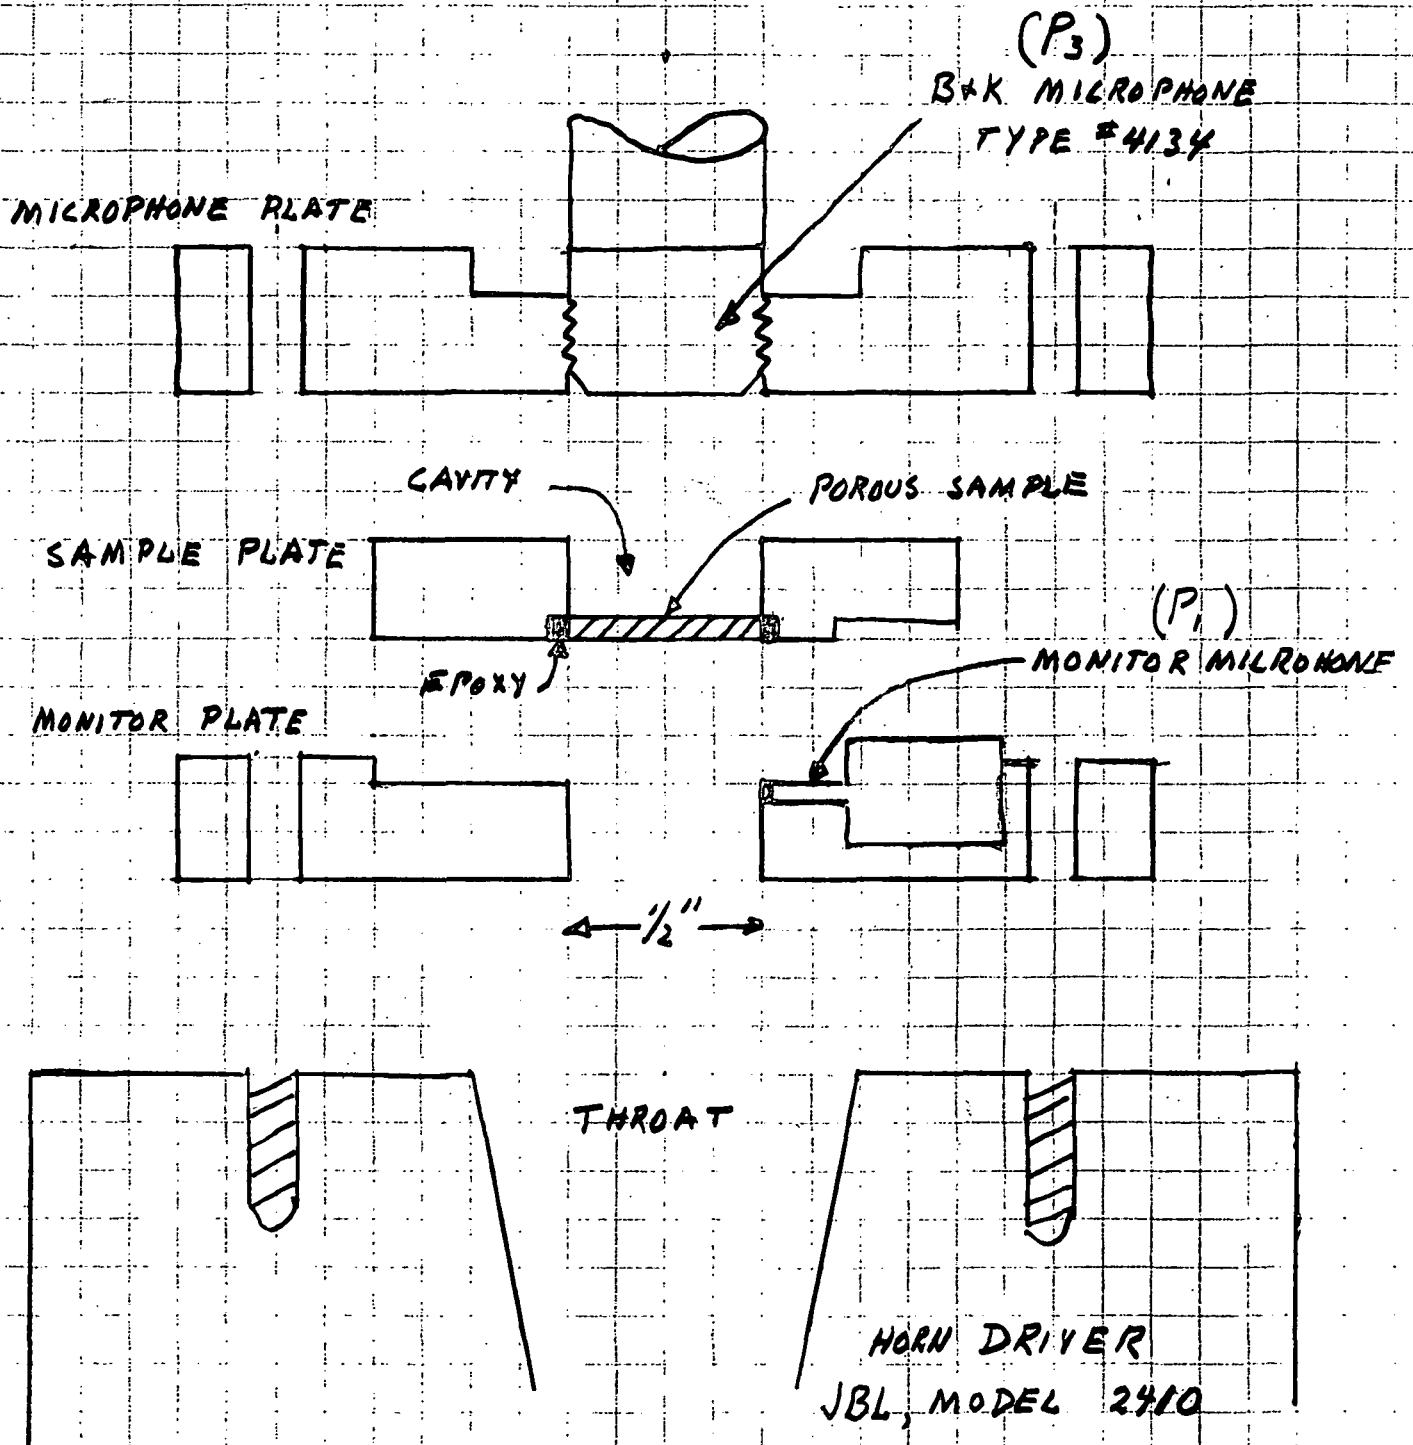 (P3)
B+K MICROPHONE
TYPE #4134
MICROPHONE PLATE
CAVITY
POROUS SAMPLE
SAMPLE PLATE
(P1)
MONITOR MILROHONE
EPOXY
MONITOR PLATE
1/2"
THROAT
HORN DRIVER
JBL, MODEL 2410